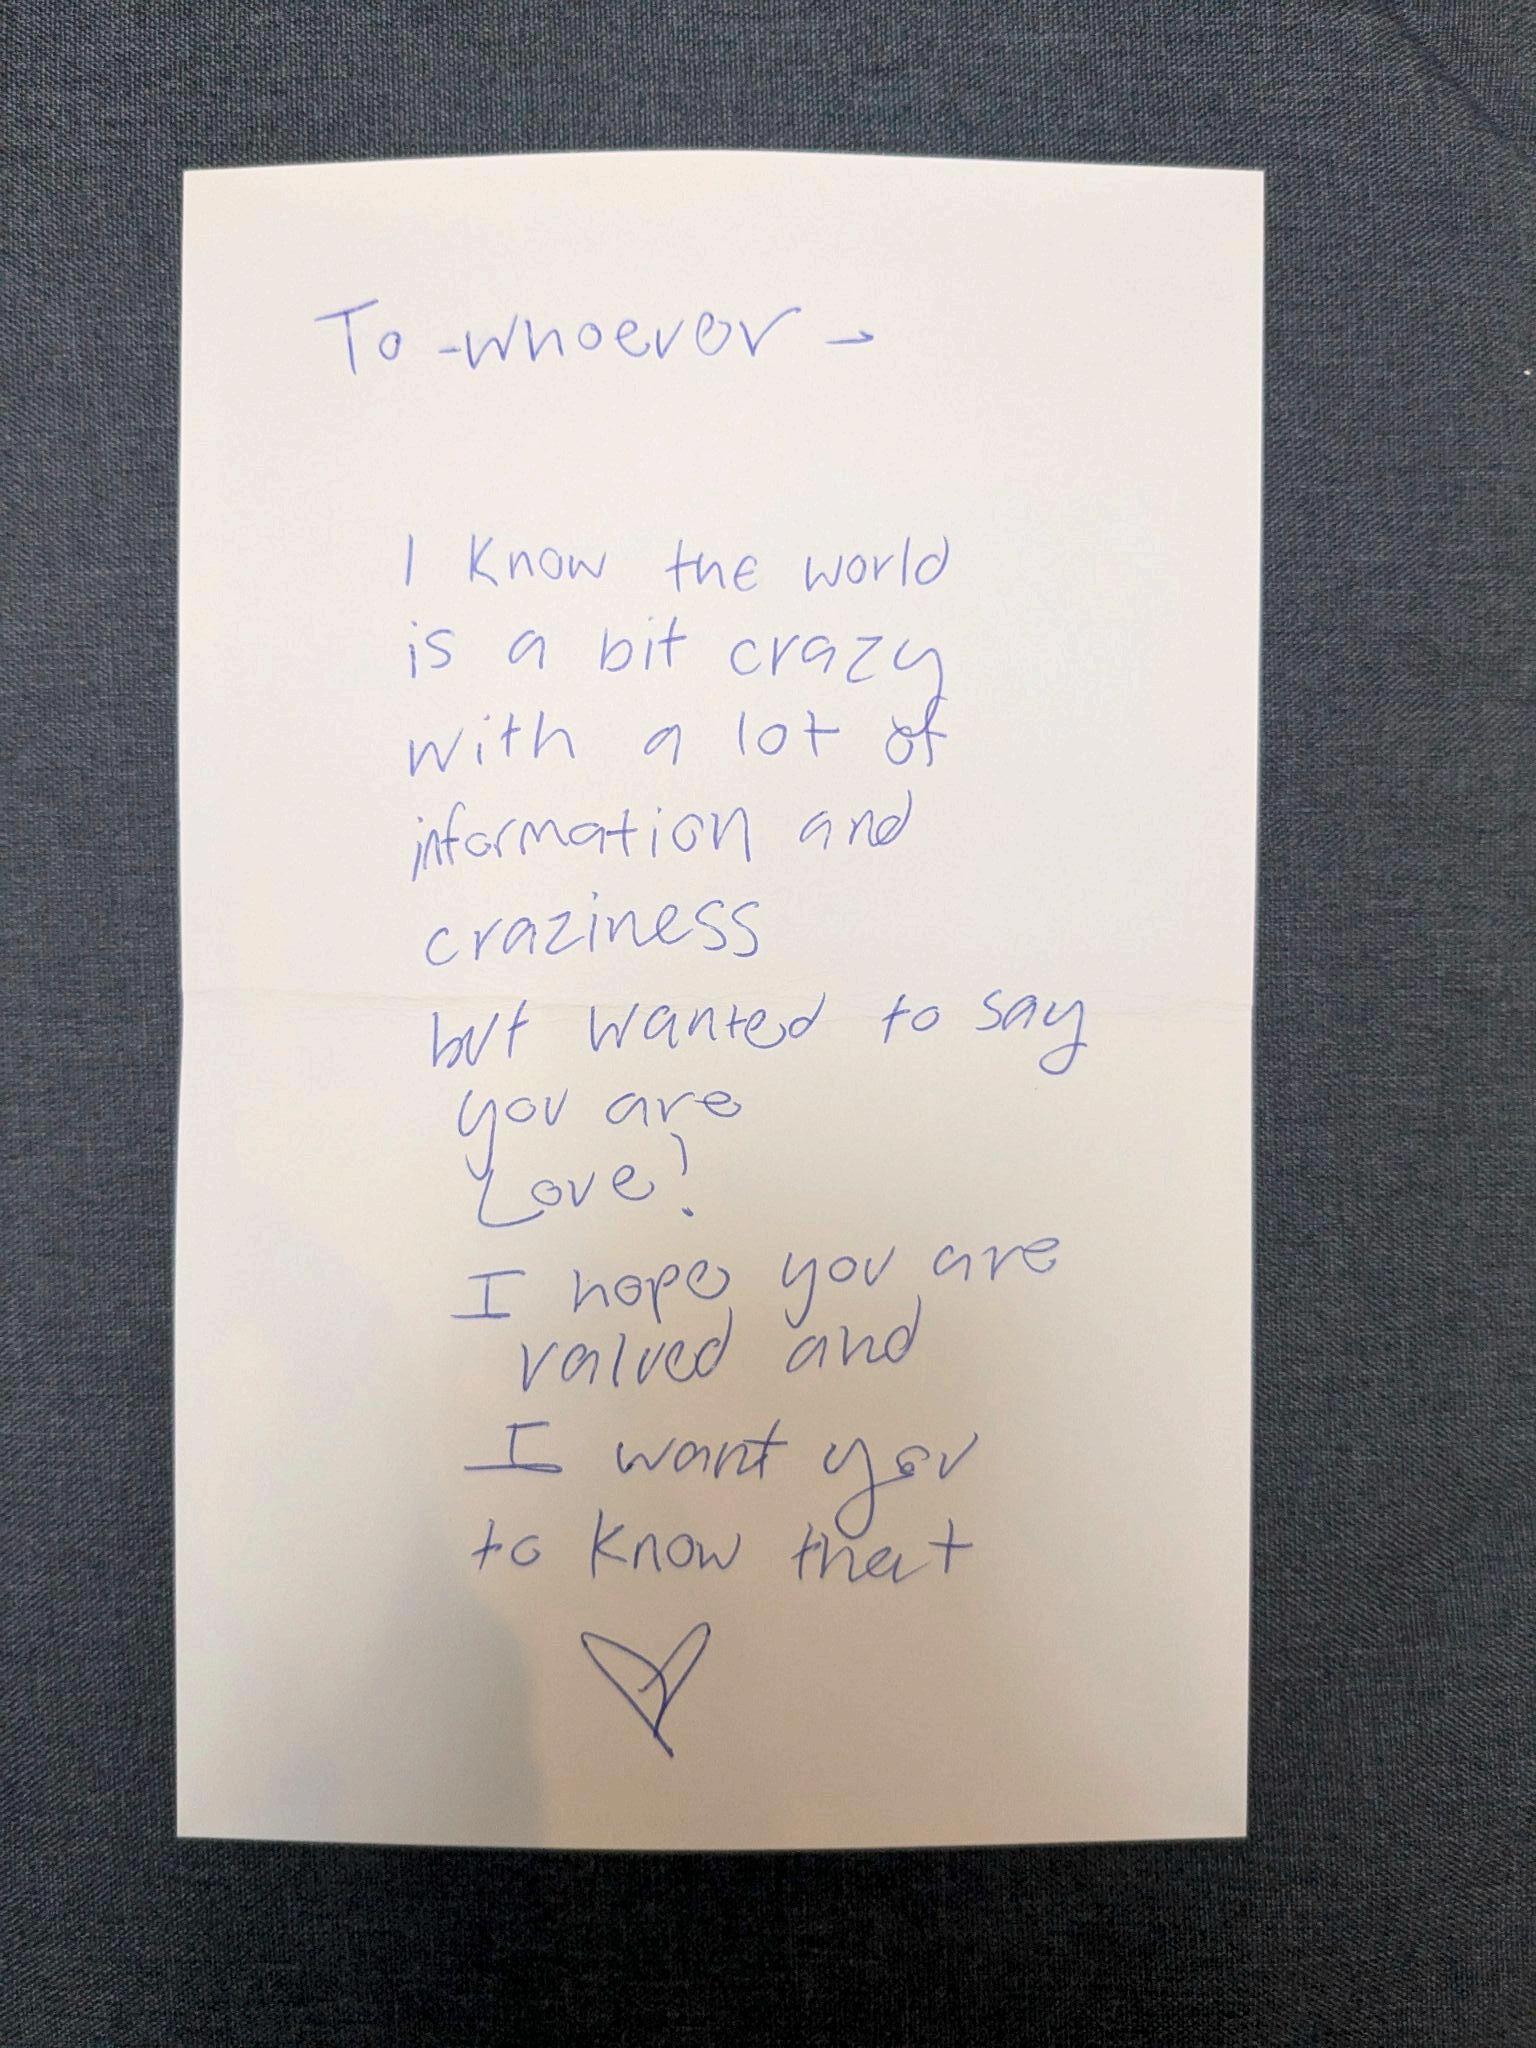 To -whoever -
I know the world
is a bit crazy
with a lot of
information and
craziness
but wanted to say
you are
Love!
I hope you are
valued and
I want you
to know that